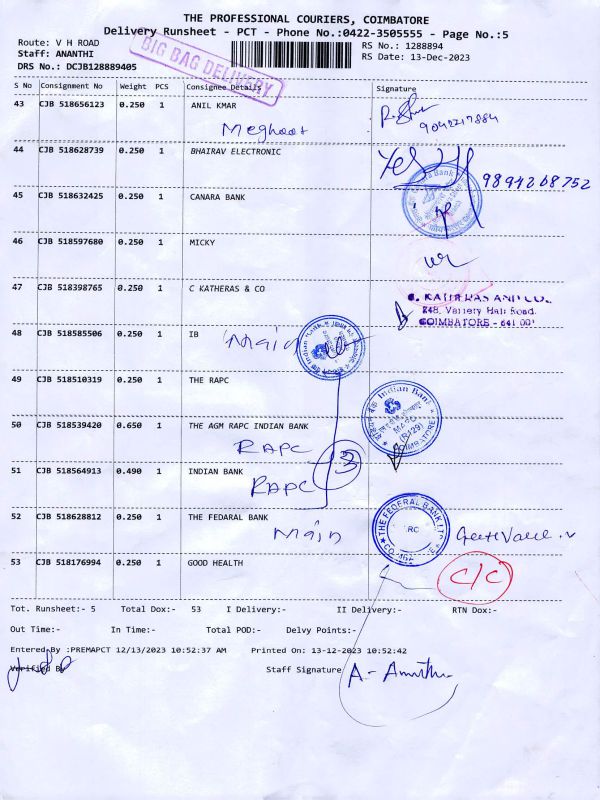 THE PROFESSIONAL COURIERS, COIMBATORE
Delivery Runsheet - PCT - Phone No.:0422-3505555 - Page No.:5
Route: V H ROAD
Staff: ANANTHI
DRS No.: DCJB128889405
BIG BAG DELIVERY
RS No.: 1288894
RS Date: 13-Dec-2023
S No Consignment No Weight PCS Consignee Details Signature
43 CJB 518656123 0.250 1 ANIL KMAR
9042217884
44 CJB 518628739 0.250 1 BHAIRAV ELECTRONIC
9894268752
45 CJB 518632425 0.250 1 CANARA BANK
46 CJB 518597680 0.250 1 MICKY
47 CJB 518398765 0.250 1 C KATHERAS & CO
COIMBATORE - 641 001
48 CJB 518585506 0.250 1 IB
Main
49 CJB 518510319 0.250 1 THE RAPC
Indian Bank
COIMBATORE
50 CJB 518539420 0.650 1 THE AGM RAPC INDIAN BANK
RAPC
3
51 CJB 518564913 0.490 1 INDIAN BANK
RAPC
52 CJB 518628812 0.250 1 THE FEDARAL BANK
Main
THE FEDERAL BANK LTD
53 CJB 518176994 0.250 1 GOOD HEALTH
C/C
Tot. Runsheet:- 5 Total Dox:- 53 I Delivery:- II Delivery:- RTN Dox:-
Out Time:- In Time:- Total POD:- Delvy Points:-
Entered By :PREMAPCT 12/13/2023 10:52:37 AM Printed On: 13-12-2023 10:52:42
Verified By Staff Signature